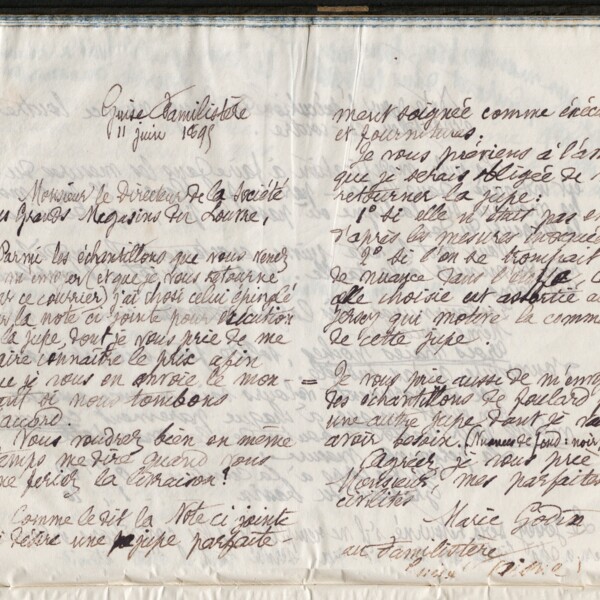 Guise Familistère
11 juin 1895
Monsieur le Directeur de la Société
Grands Magasins du Louvre,
Parmi les échantillons que vous venez
(et que je vous retourne
ce courrier) j'ai choisi celui épinglé
la note ci jointe pour exécution
la jupe, dont je vous prie de me
faire connaître le prix afin
que je vous en envoie le mon-
tant si nous tombons
d'accord.
Vous voudrez bien en même
temps me dire quand vous
me feriez la livraison?
Comme le dit la Note ci jointe
je désire une jupe parfaite-
ment soignée comme exécu
et fournitures.
Je vous préviens à l'a
que je serais obligée de
retourner la jupe:
1º si elle n'était pas
d'après les mesures indiquée
2º si l'on se trompait
de nuance dans l'étoffe
elle choisie est assortie au
jersey qui motive la comm
de cette jupe.
= Je vous prie aussi de m'envo
des échantillons de foulard
une autre jupe, dont je
avoir besoin. (Nuances de fond: noir
Agréez, je vous prie
Monsieur, mes parfaites
civilités
Marie Godin
au Familistère